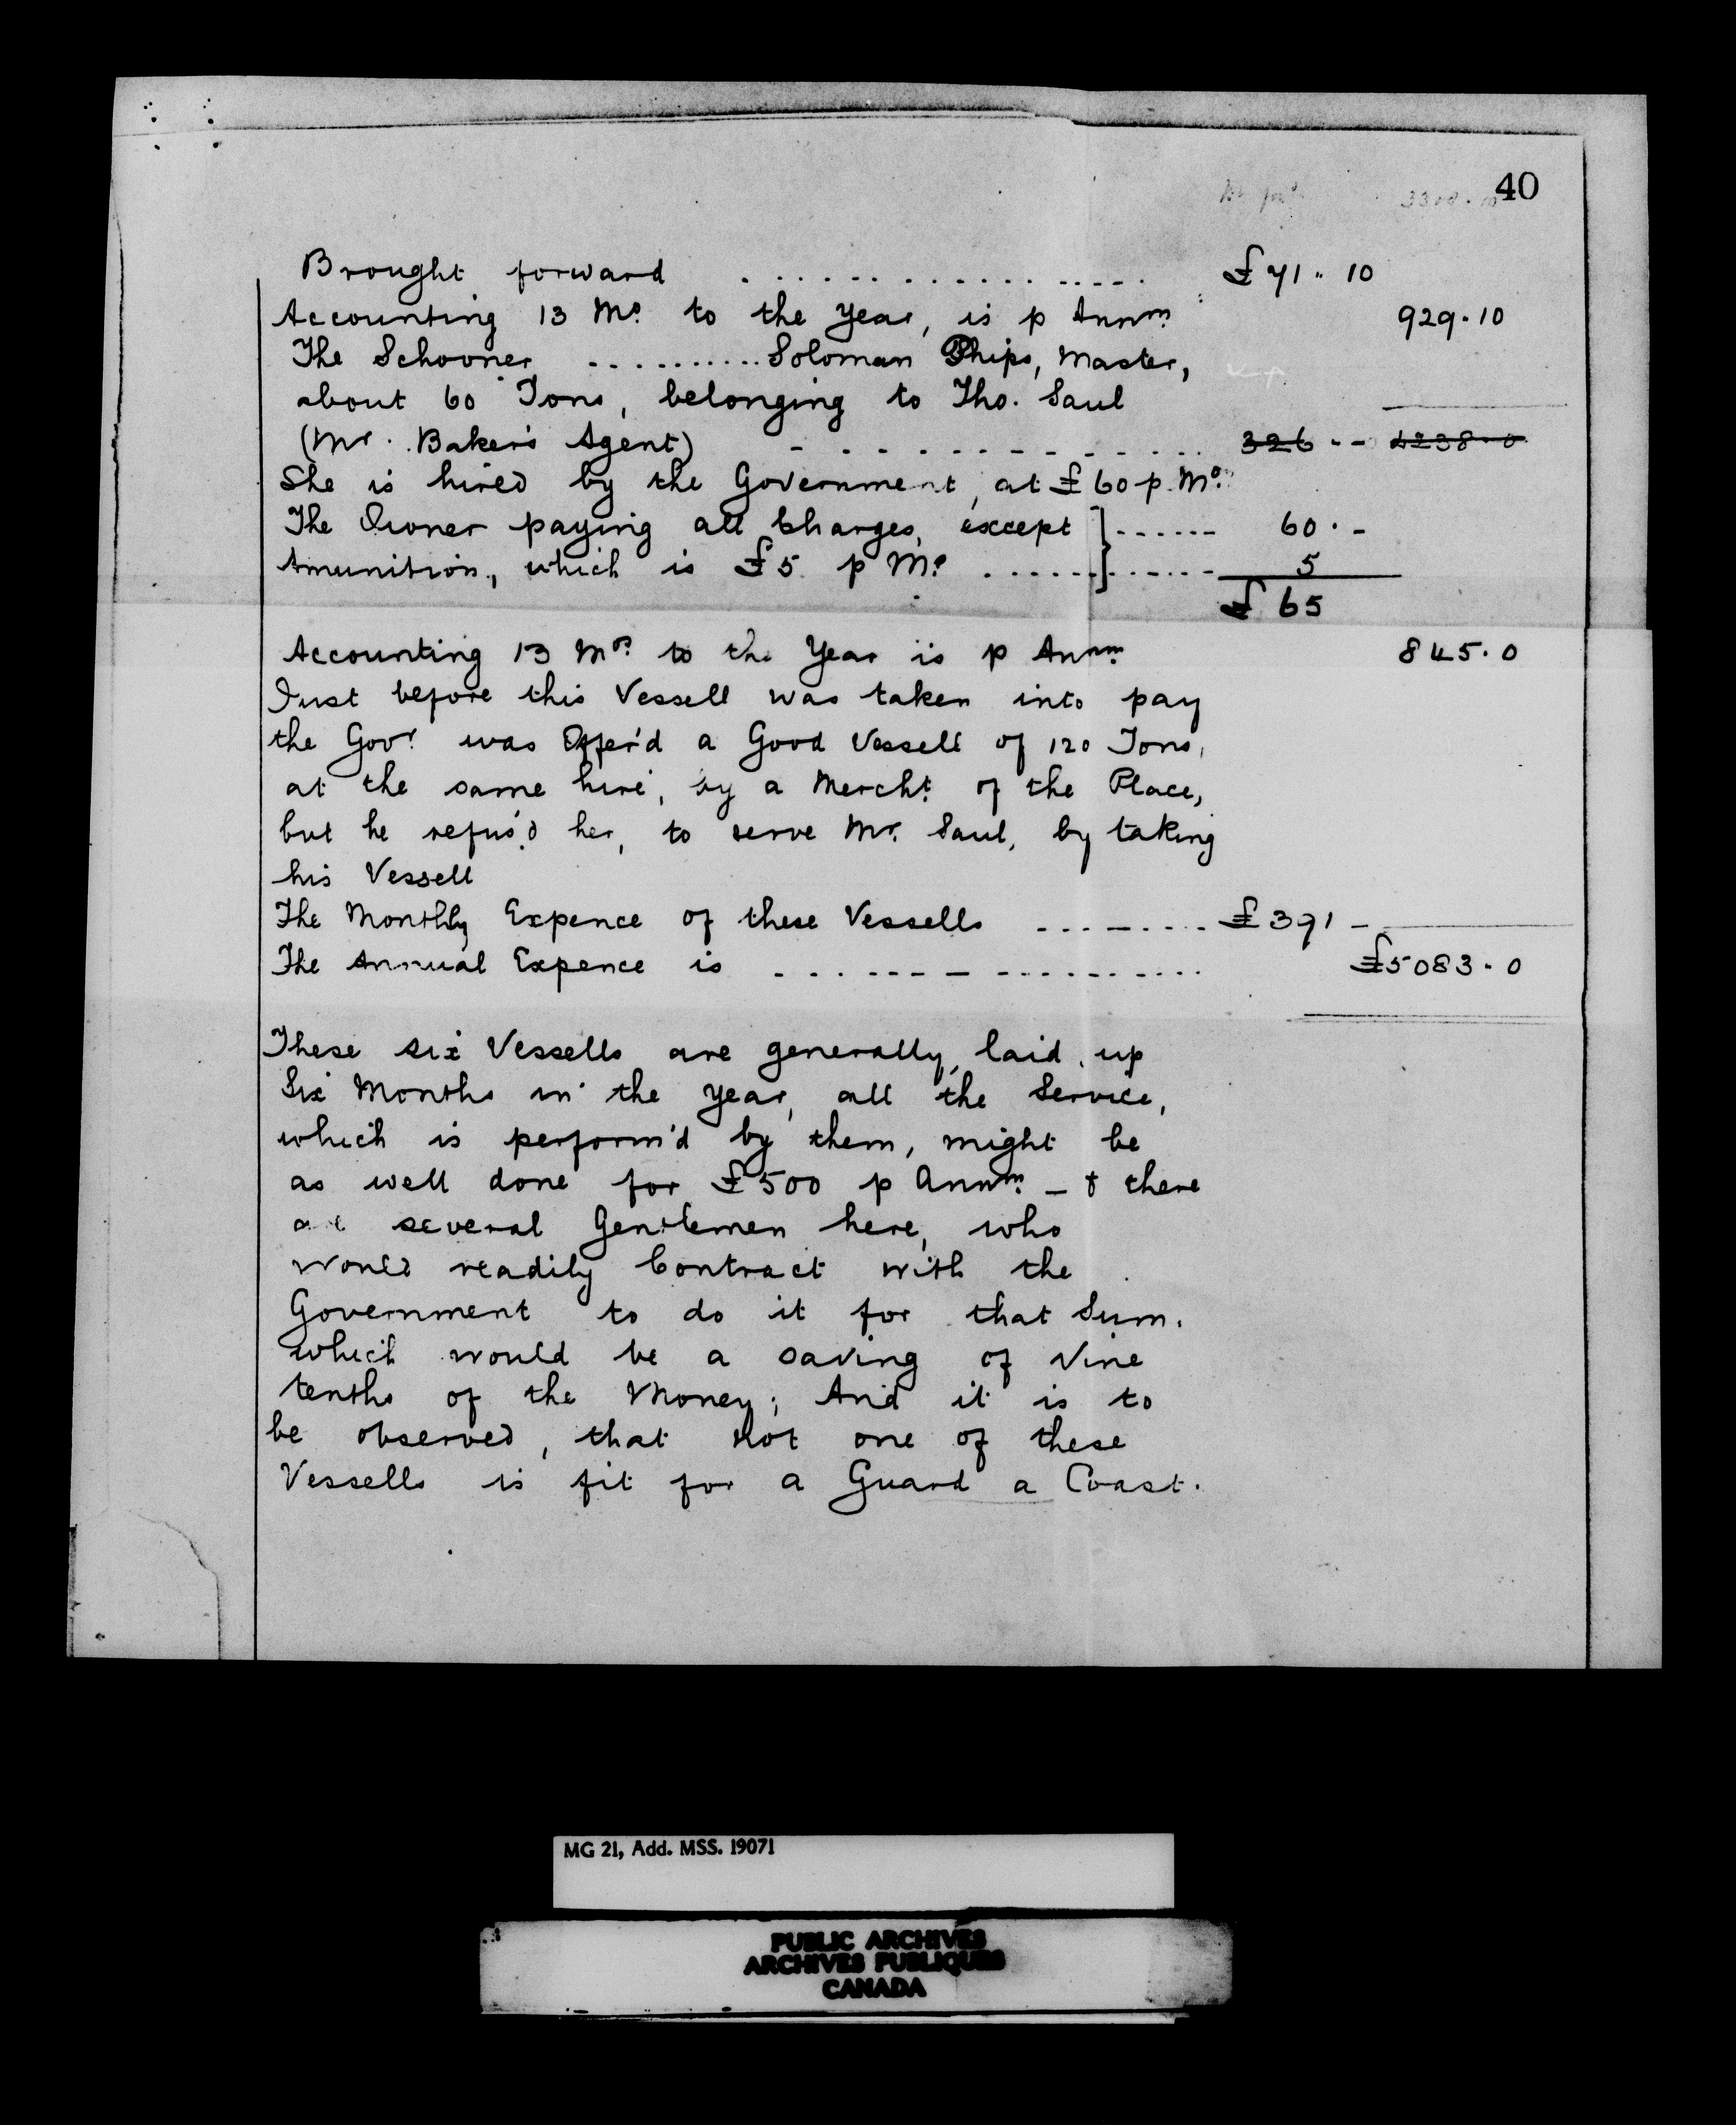 40
3308.10
Brought forward .................. £71.. 10
Accounting 13 Mo. to the Year, is p Annm. 929.10
The Schooner ..........Soloman Phips, Master,
about 60 Tons, belonging to Tho. Saul
(Mr. Baker's Agent) - - - - - - - - - - 326 . - 4238.0
She is hired by the Government, at £60 p. Mo.
The Owner paying all Charges, except } ...... 60. -
Amunition, which is £5 p Mo. ............ 5
£ 65
Accounting 13 Mos. to the Year is p Annm. 845.0
Just before this Vessell was taken into pay
the Govr. was Offer'd a Good Vessell of 120 Tons,
at the same hire, by a Mercht. of the Place,
but he refus'd her, to serve Mr. Saul, by taking
his Vessell
The Monthly Expence of these Vessells ......... £391 -
The Annual Expence is .................. £5083.0
These six Vessells are generally laid up
Six Months in the year, all the Service,
which is perform'd by them, might be
as well done for £500 p Annm. - & there
are several Gentlemen here, who
would readily Contract with the
Government to do it for that Sum.
which would be a saving of Nine
tenths of the Money; And it is to
be observed, that Not one of these
Vessells is fit for a Guard a Coast.
MG 21, Add. MSS. 19071
PUBLIC ARCHIVES
ARCHIVES PUBLIQUES
CANADA